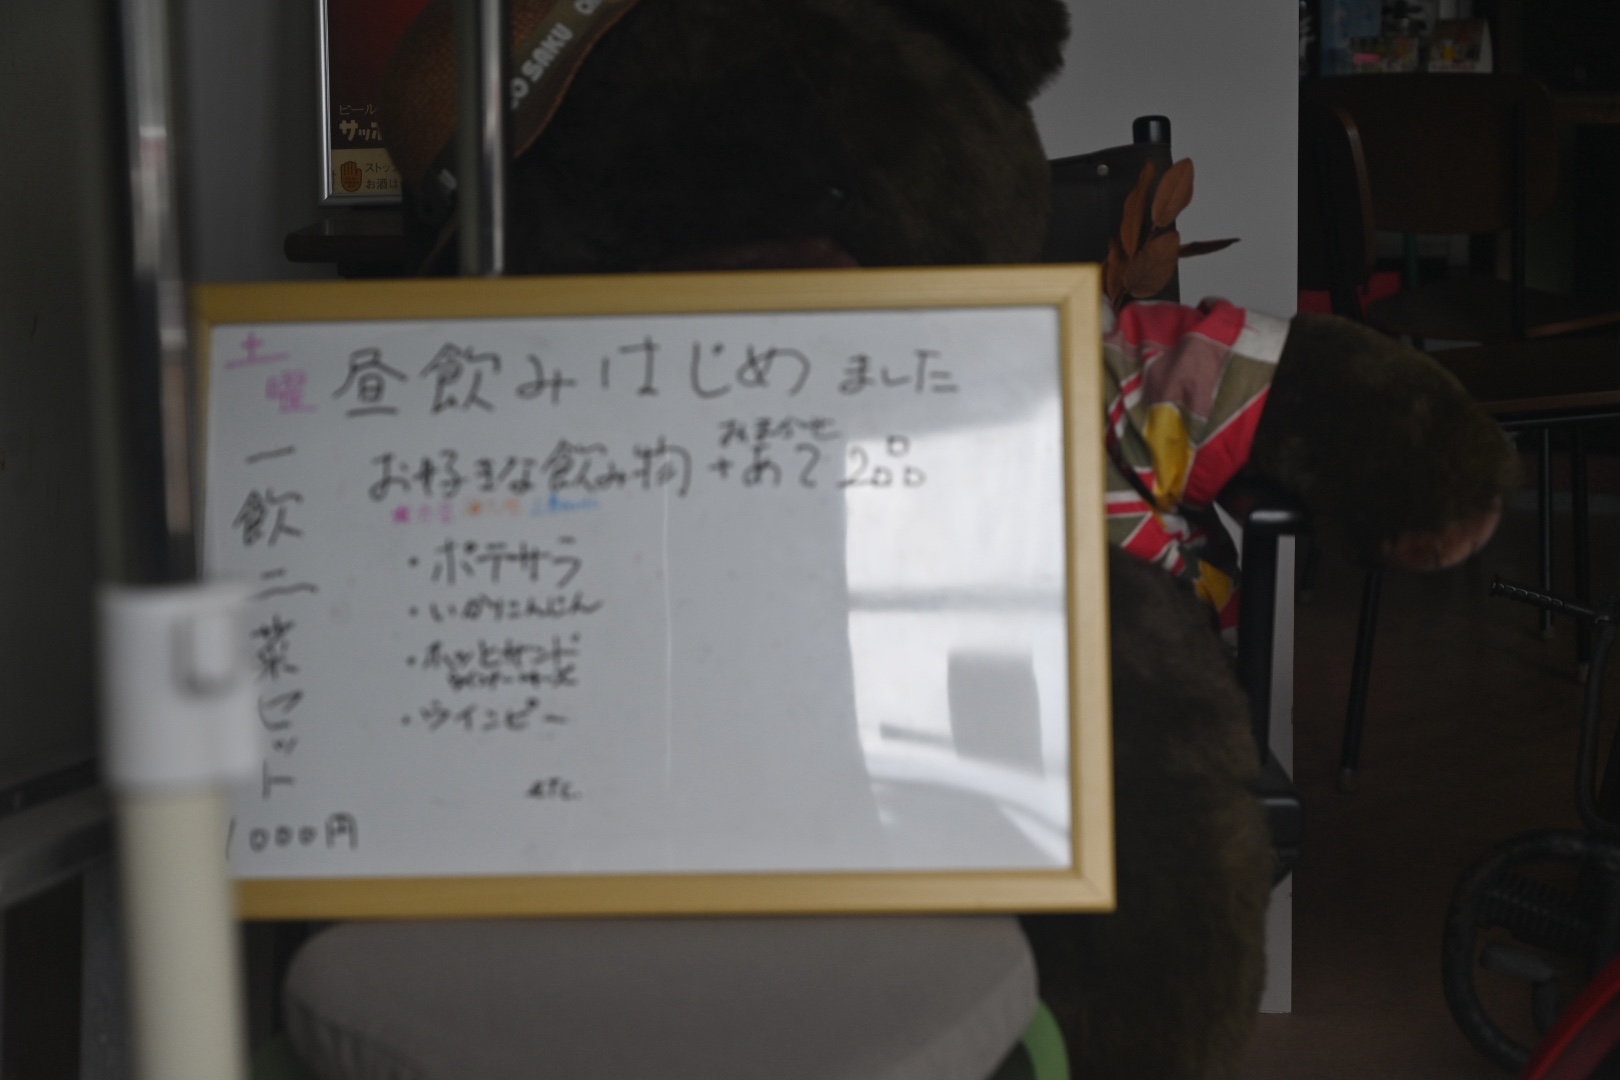 O SAKU
ビール
サッポ
ストップ
お酒は
土曜
昼飲みはじめました
一飲二菜セット
1000円
おまかせ
お好きな飲み物+あて2品
・ポテサラ
・いかにんじん
・ホットサンド
・ウインピー
etc